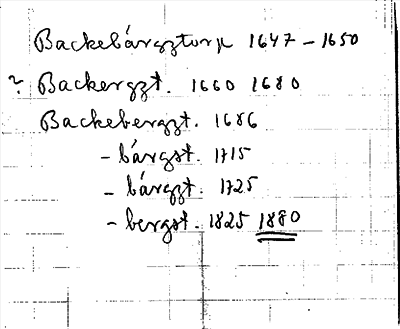 Backebårgztorp 1647 - 1650
? Backergzt. 1660 1680
Backebergzt. 1686
- bårgst. 1715
- bårgzt. 1725
- bergst. 1825 1880